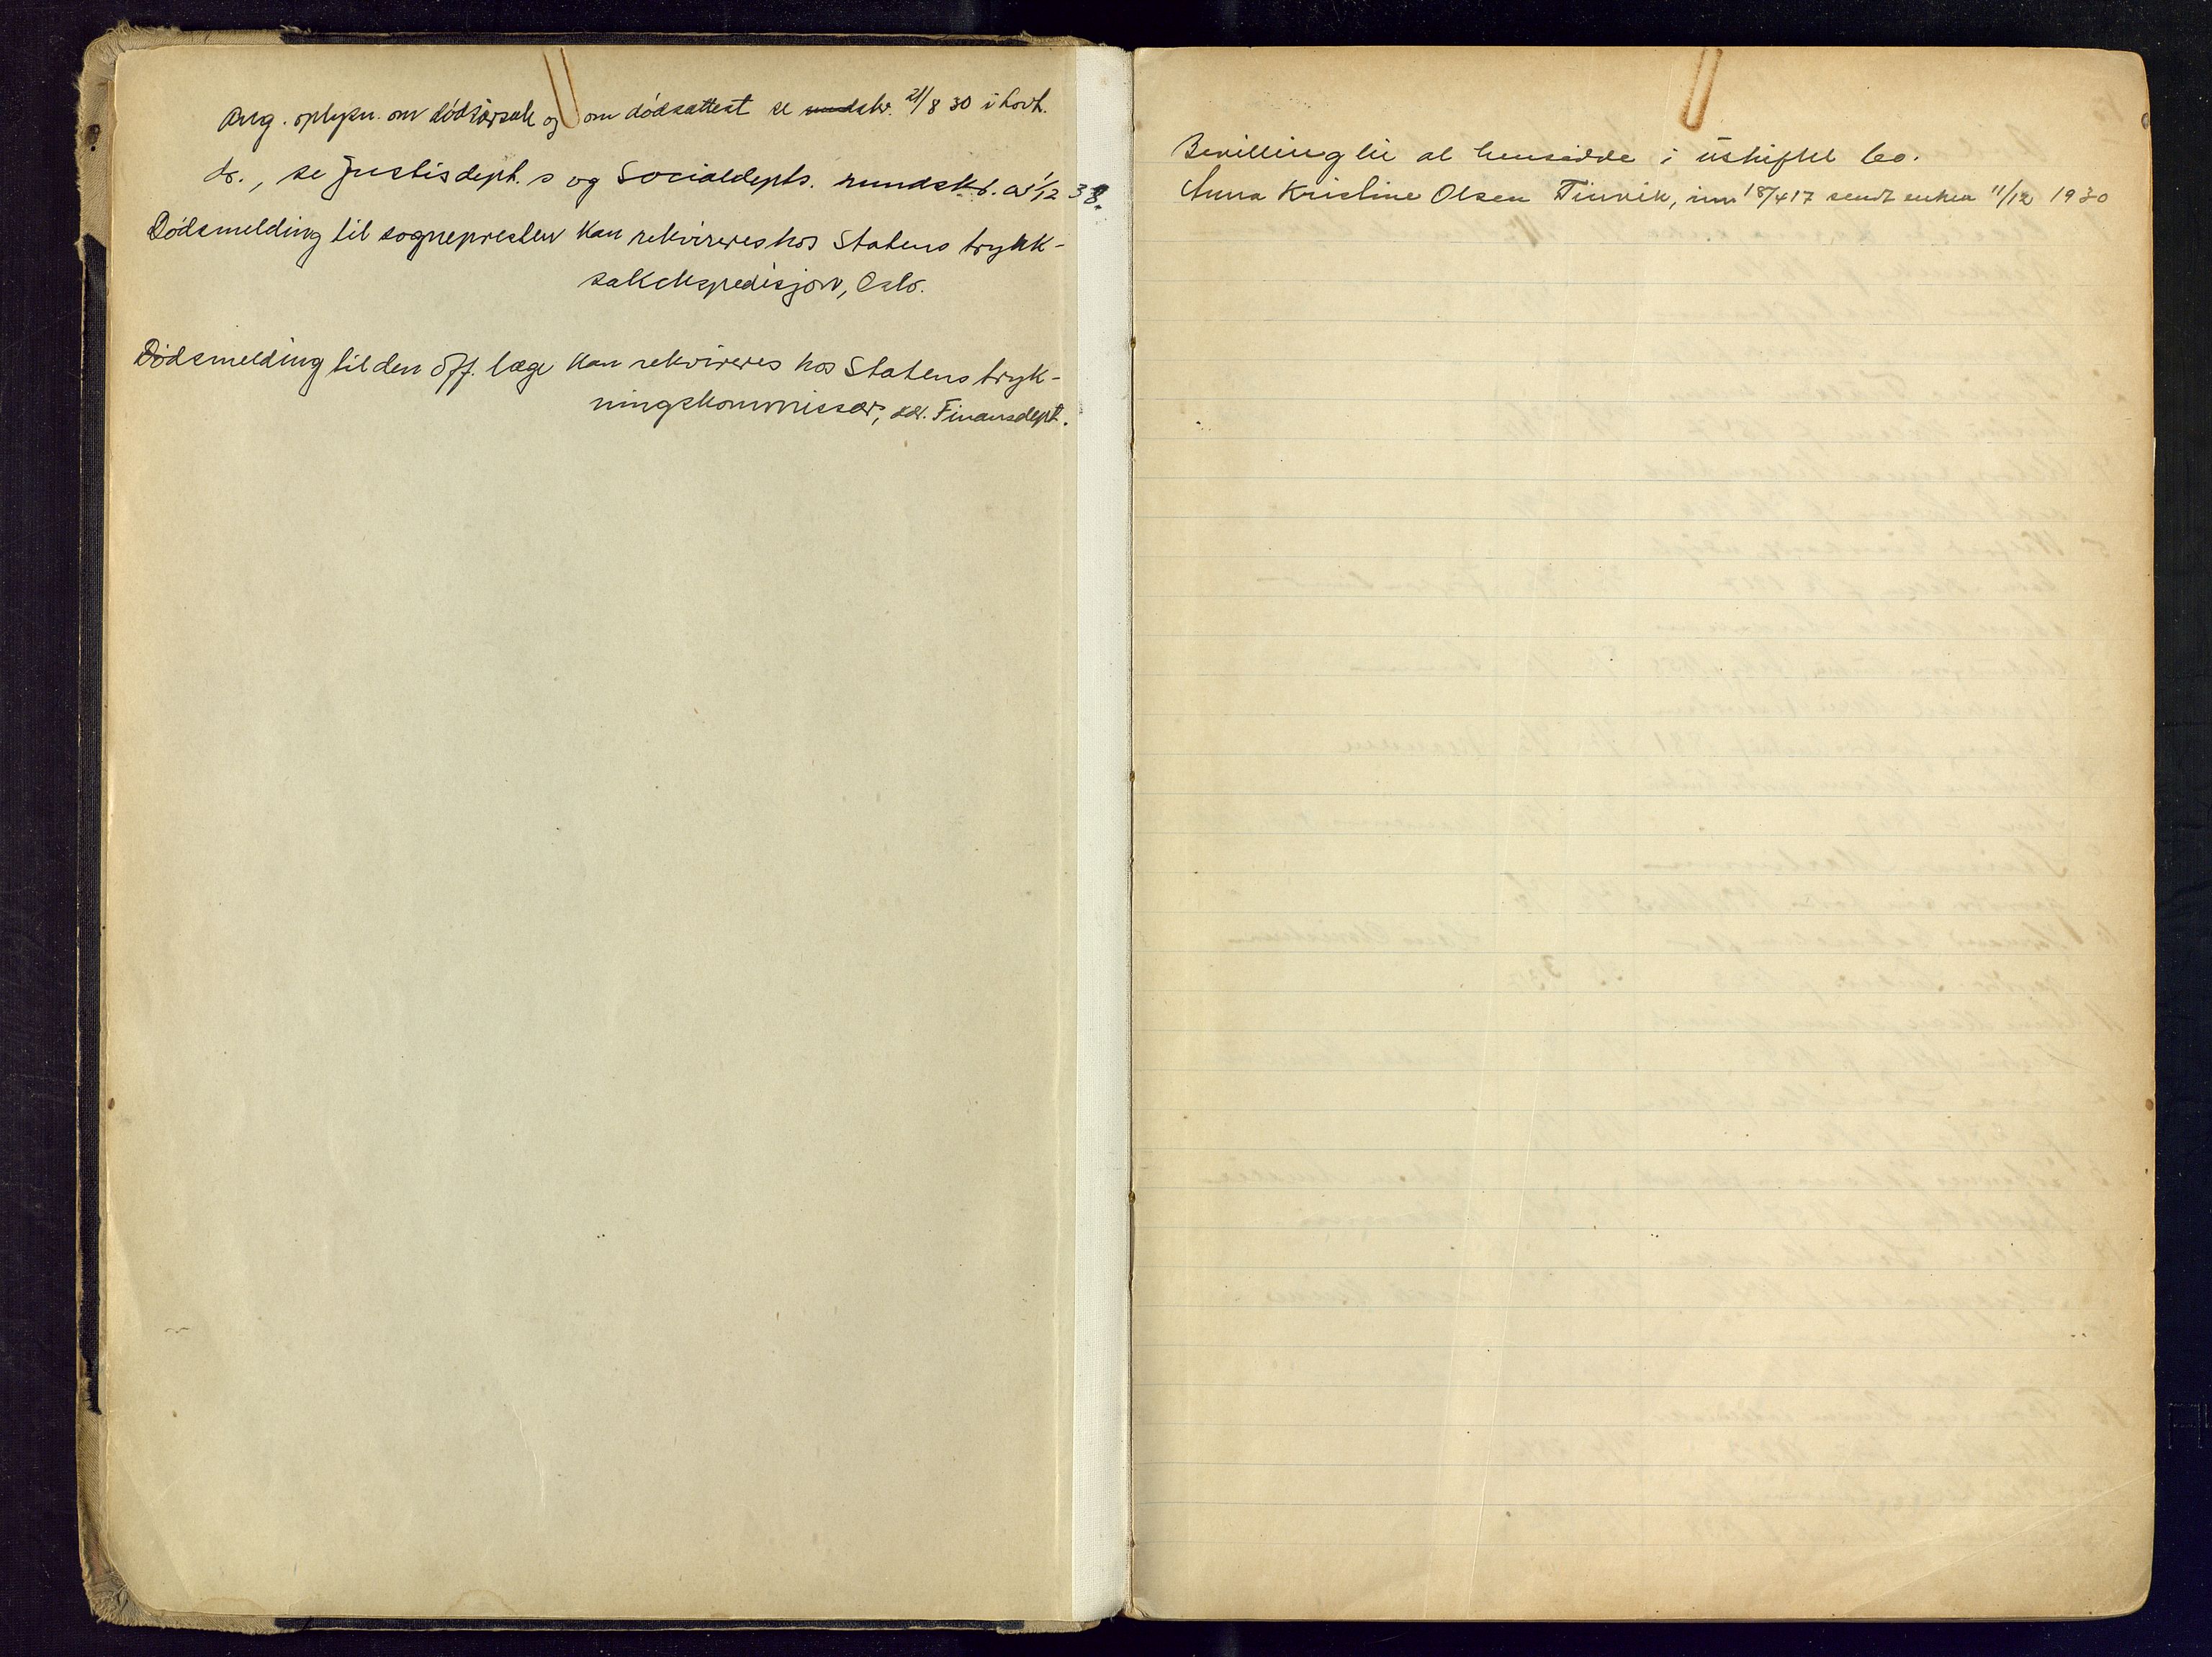 Ang. oplysn. om dødsårsak og om dødsattest se rundskr. 21/8 30 i Lovt.
dr., se Justisdept.s og Socialdepts. rundskr. av 1/12 38.
Dødsmelding til sognepresten kan rekvireres hos Statens trykk-
sakekspedisjon, Oslo.
Dødsmelding til den off. læge kan rekvireres hos Statens tryk-
ningskommissær, adr. Finansdept.
Bevilling til at hensidde i uskiftet bo.
Anna Kristine Olsen Finvik, inn 18/4 17 sendt enken 11/12 1930